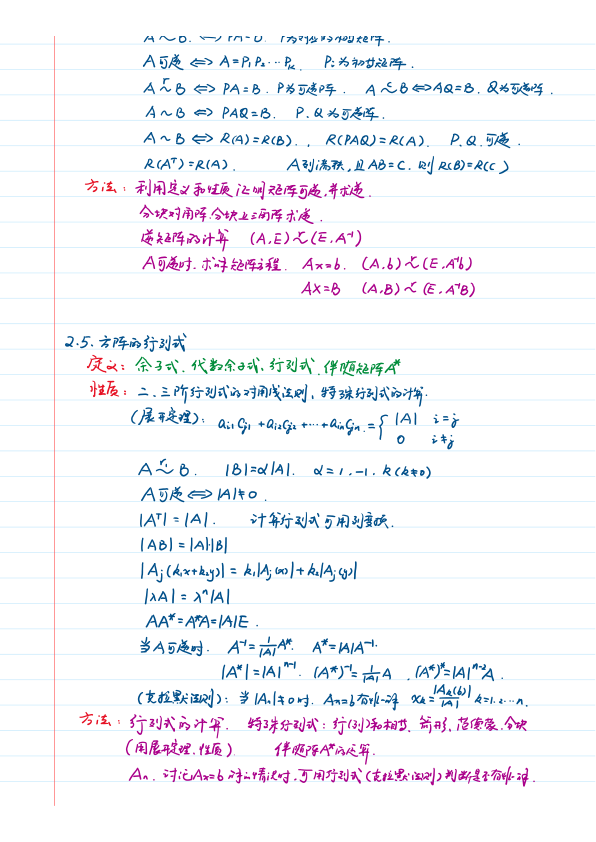 A ~ B. ⟺ PA=B. P为可逆的初等矩阵.
A可逆 ⟺ A=P₁P₂…Pₖ. Pᵢ为初等矩阵.
A ~ʳ B ⟺ PA=B. P为可逆阵. A ~ᶜ B ⟺ AQ=B. Q为可逆阵.
A ~ B ⟺ PAQ=B. P.Q为可逆阵.
A ~ B ⟺ R(A)=R(B)., R(PAQ)=R(A). P.Q.可逆.
R(Aᵀ)=R(A). A列满秩,且AB=C. 则R(B)=R(C)
方法: 利用定义和性质证明矩阵可逆,并求逆.
分块对角阵.分块上三角阵求逆.
逆矩阵的计算 (A,E) ~ʳ (E,A⁻¹)
A可逆时.求解矩阵方程. Ax=b. (A,b) ~ʳ (E,A⁻¹b)
AX=B (A,B) ~ʳ (E,A⁻¹B)
2.5.方阵的行列式
定义: 余子式.代数余子式.行列式.伴随矩阵A*
性质: 二.三阶行列式的对角线法则,特殊行列式的计算.
(展开定理): aᵢ₁Cⱼ₁+aᵢ₂Cⱼ₂+…+aᵢₙCⱼₙ.={ |A| i=j
0 i≠j
A ~ʳ¹ B. |B|=α|A|. α=1,-1.k(k≠0)
A可逆 ⟺ |A|≠0.
|Aᵀ|=|A|. 计算行列式可用列变换.
|AB|=|A||B|
|Aⱼ(k₁x+k₂y)|=k₁|Aⱼ(x)|+k₂|Aⱼ(y)|
|λA|=λⁿ|A|
AA*=A*A=|A|E.
当A可逆时. A⁻¹=1/|A| A*. A*=|A|A⁻¹.
|A*|=|A|ⁿ⁻¹. (A*)⁻¹=1/|A| A .(A*)*=|A|ⁿ⁻²A.
(克拉默法则): 当|Aₙ|≠0时. Aₙx=b有唯一解 xₖ=|Aₖ(b)|/|A| k=1.2.…n.
方法: 行列式的计算. 特殊行列式:行(列)和相等.箭形.范德蒙.分块
(用展开定理.性质). 伴随阵A*的运算.
Aₙ.讨论Ax=b的解的情况时.可用行列式(克拉默法则)判断是否有唯一解.